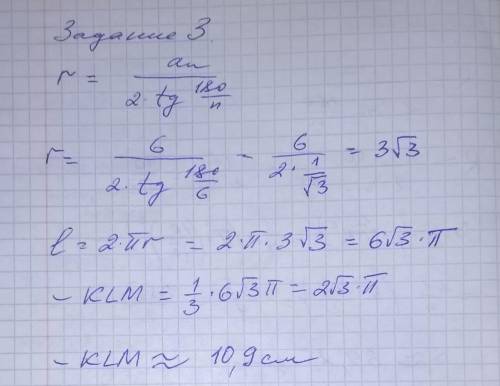 Задание 3
r = an / 2·tg 180/n
r = 6 / 2·tg 180/6 - 6 / 2·1/√3 = 3√3
l = 2·πr = 2·π·3√3 = 6√3·π
~KLM = 1/3·6√3π = 2√3·π
~KLM ≈ 10,9см